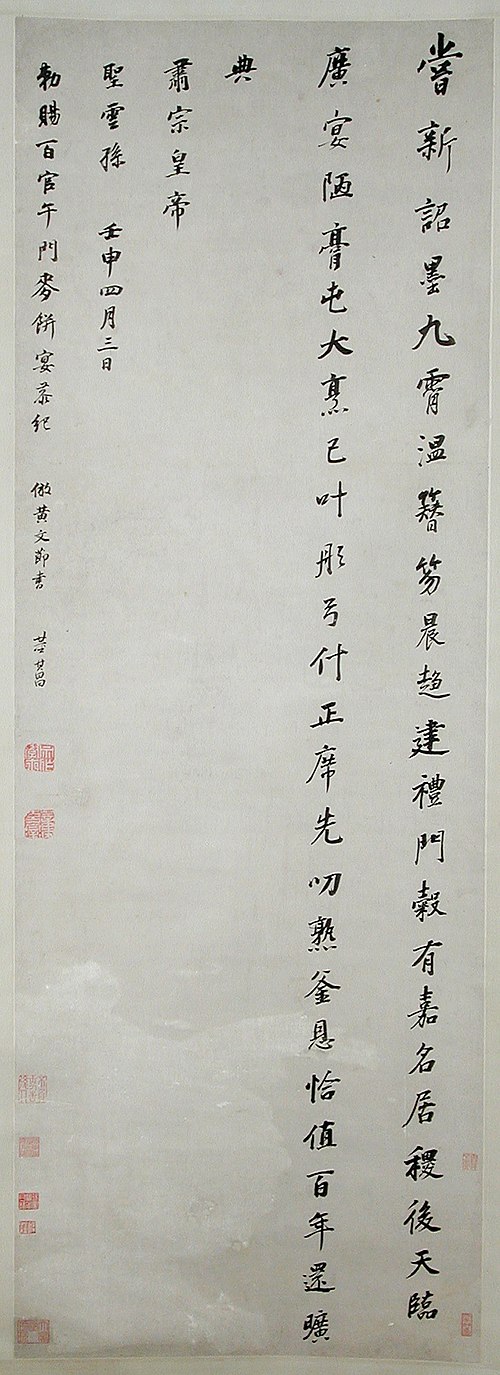 嘗新詔墨九霄溫簪笏晨趍建禮門穀有嘉名居稷後天臨
廣宴陋膏屯大烹已叶彤弓什正席先叨熟釜恩恰值百年還曠
典
肅宗皇帝
聖雲孫 壬申四月三日
勅賜百官午門麥餅宴恭紀 倣黃文節書 董其昌